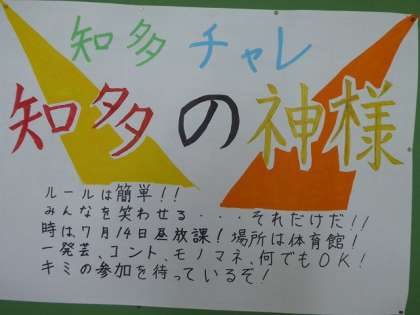 知多チャレ
知多多の神様
ルールは簡単！！
みんなを笑わせる・・・それだけだ！！
時は７月１４日昼放課！場所は体育館！
一発芸、コント、モノマネ、何でもＯＫ！
キミの参加を待っているぞ！